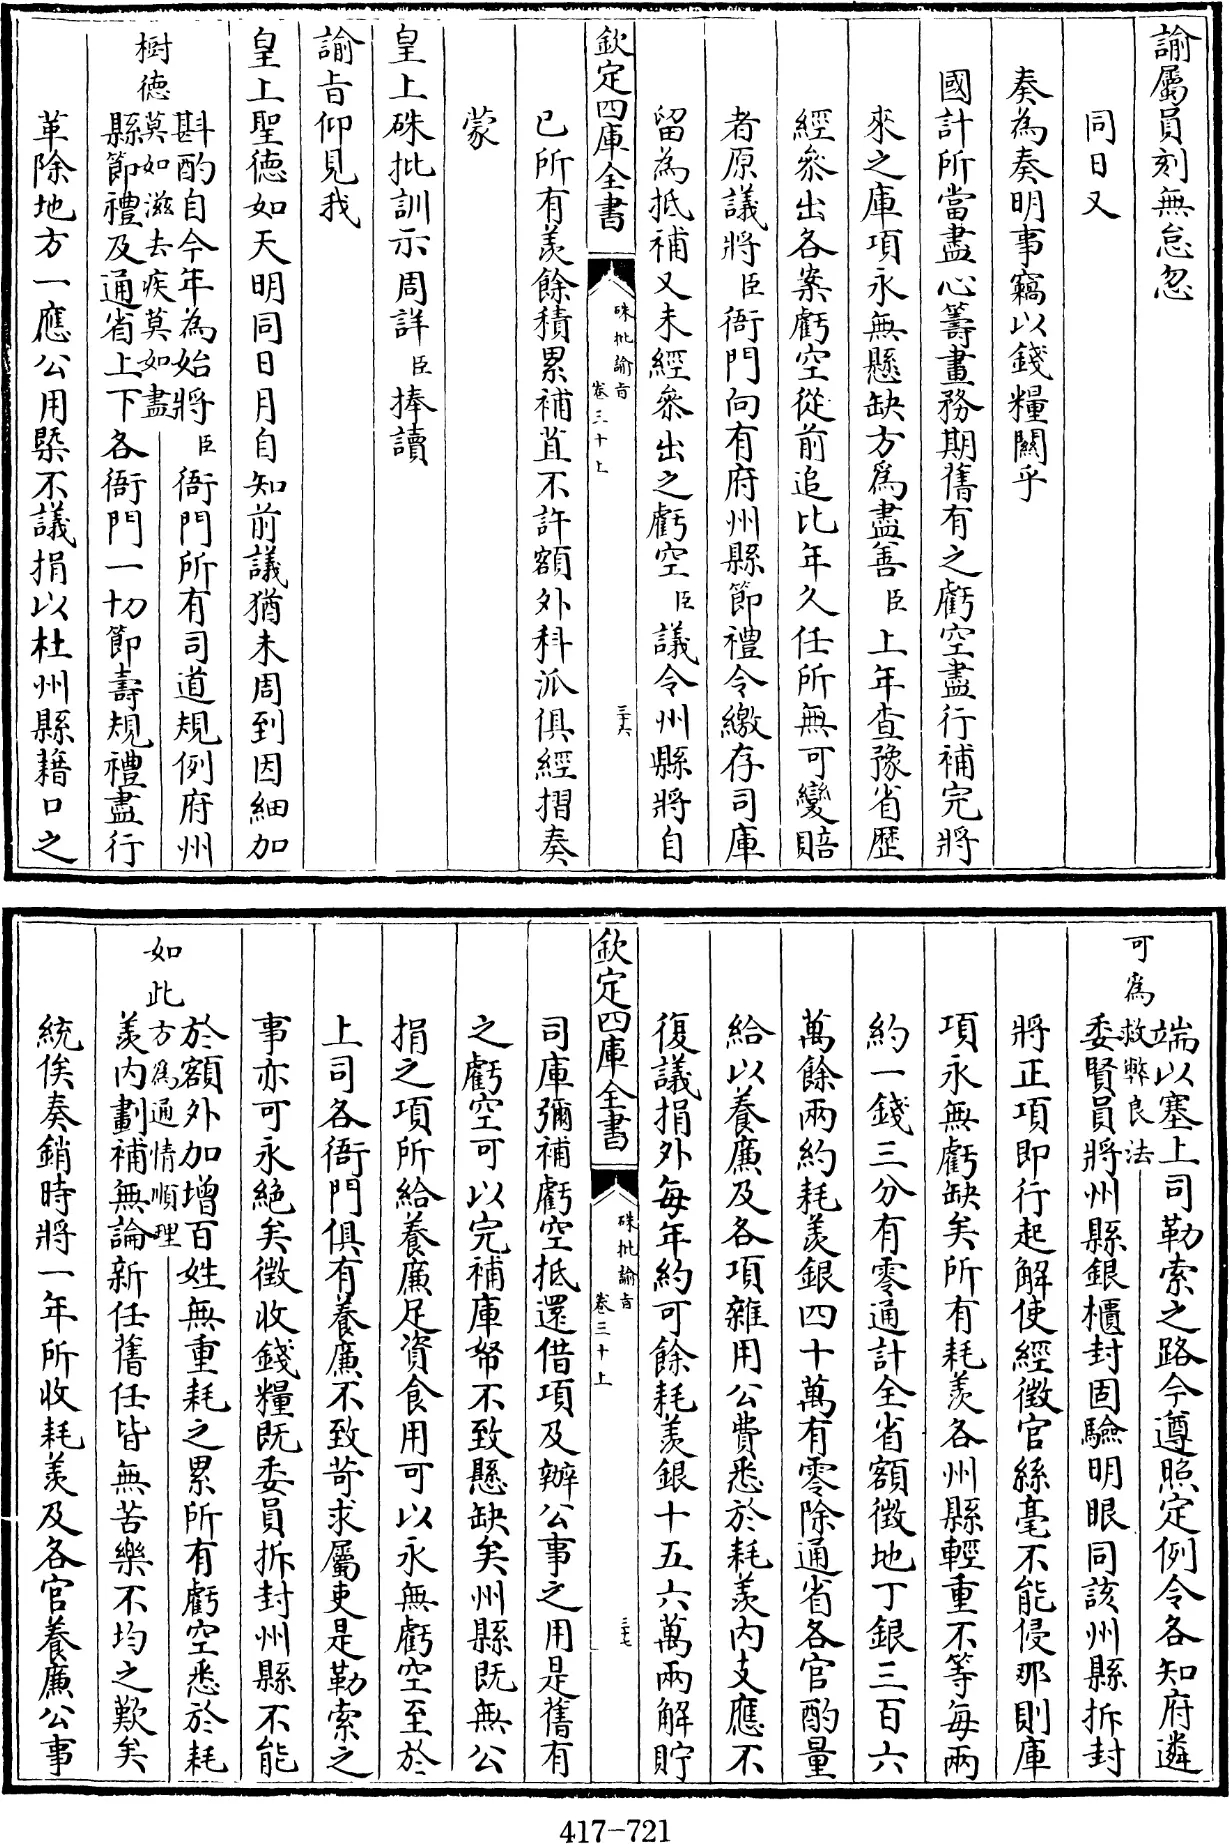 諭屬員刻無怠忽
同日又
奏為奏明事竊以錢糧關乎
國計所當盡心籌畫務期舊有之虧空盡行補完將
來之庫項永無懸缺方爲盡善臣上年查豫省歷
經叅出各案虧空從前追比年久任所無可變賠
者原議將臣衙門向有府州縣節禮令繳存司庫
留為抵補又未經叅出之虧空臣議令州縣將自
欽定四庫全書
硃批諭旨
卷三十上
三十六
已所有羨餘積累補苴不許額外科派俱經摺奏
蒙
皇上硃批訓示周詳臣捧讀
諭旨仰見我
皇上聖德如天明同日月自知前議猶未周到因細加
斟酌自今年為始將臣衙門所有司道規例府州
樹德莫如滋去疾莫如盡
縣節禮及通省上下各衙門一切節壽規禮盡行
革除地方一應公用槩不議捐以杜州縣藉口之
端以塞上司勒索之路今遵照定例令各知府遴
可爲救弊良法
委賢員將州縣銀櫃封固驗明眼同該州縣拆封
將正項即行起解使經徵官絲毫不能侵那則庫
項永無虧缺矣所有耗羨各州縣輕重不等每兩
約一錢三分有零通計全省額徵地丁銀三百六
萬餘兩約耗羨銀四十萬有零除通省各官酌量
給以養廉及各項雜用公費悉於耗羨内支應不
復議捐外每年約可餘耗羨銀十五六萬兩解貯
欽定四庫全書
硃批諭旨
卷三十上
三十七
司庫彌補虧空抵還借項及辦公事之用是舊有
之虧空可以完補庫帑不致懸缺矣州縣既無公
捐之項所給養廉足資食用可以永無虧空至於
上司各衙門俱有養廉不致苛求屬吏是勒索之
事亦可永絕矣徵收錢糧既委員拆封州縣不能
於額外加增百姓無重耗之累所有虧空悉於耗
如此方爲通情順理
羨内劃補無論新任舊任皆無苦樂不均之歎矣
統俟奏銷時將一年所收耗羨及各官養廉公事
417-721